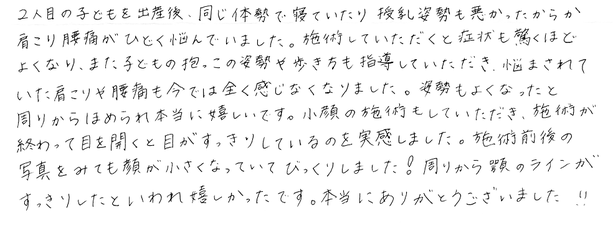 2人目の子どもを出産後、同じ体勢で寝ていたり授乳姿勢も悪かったからか
肩こり腰痛がひどく悩んでいました。施術していただくと症状も驚くほど
よくなり、また子どもの抱っこの姿勢や歩き方も指導していただき、悩まされて
いた肩こりや腰痛も今では全く感じなくなりました。姿勢もよくなったと
周りからほめられ本当に嬉しいです。小顔の施術もしていただき、施術が
終わって目を開くと目がすっきりしているのを実感しました。施術前後の
写真をみても顔が小さくなっていてびっくりしました!周りから顎のラインが
すっきりしたといわれ嬉しかったです。本当にありがとうございました!!